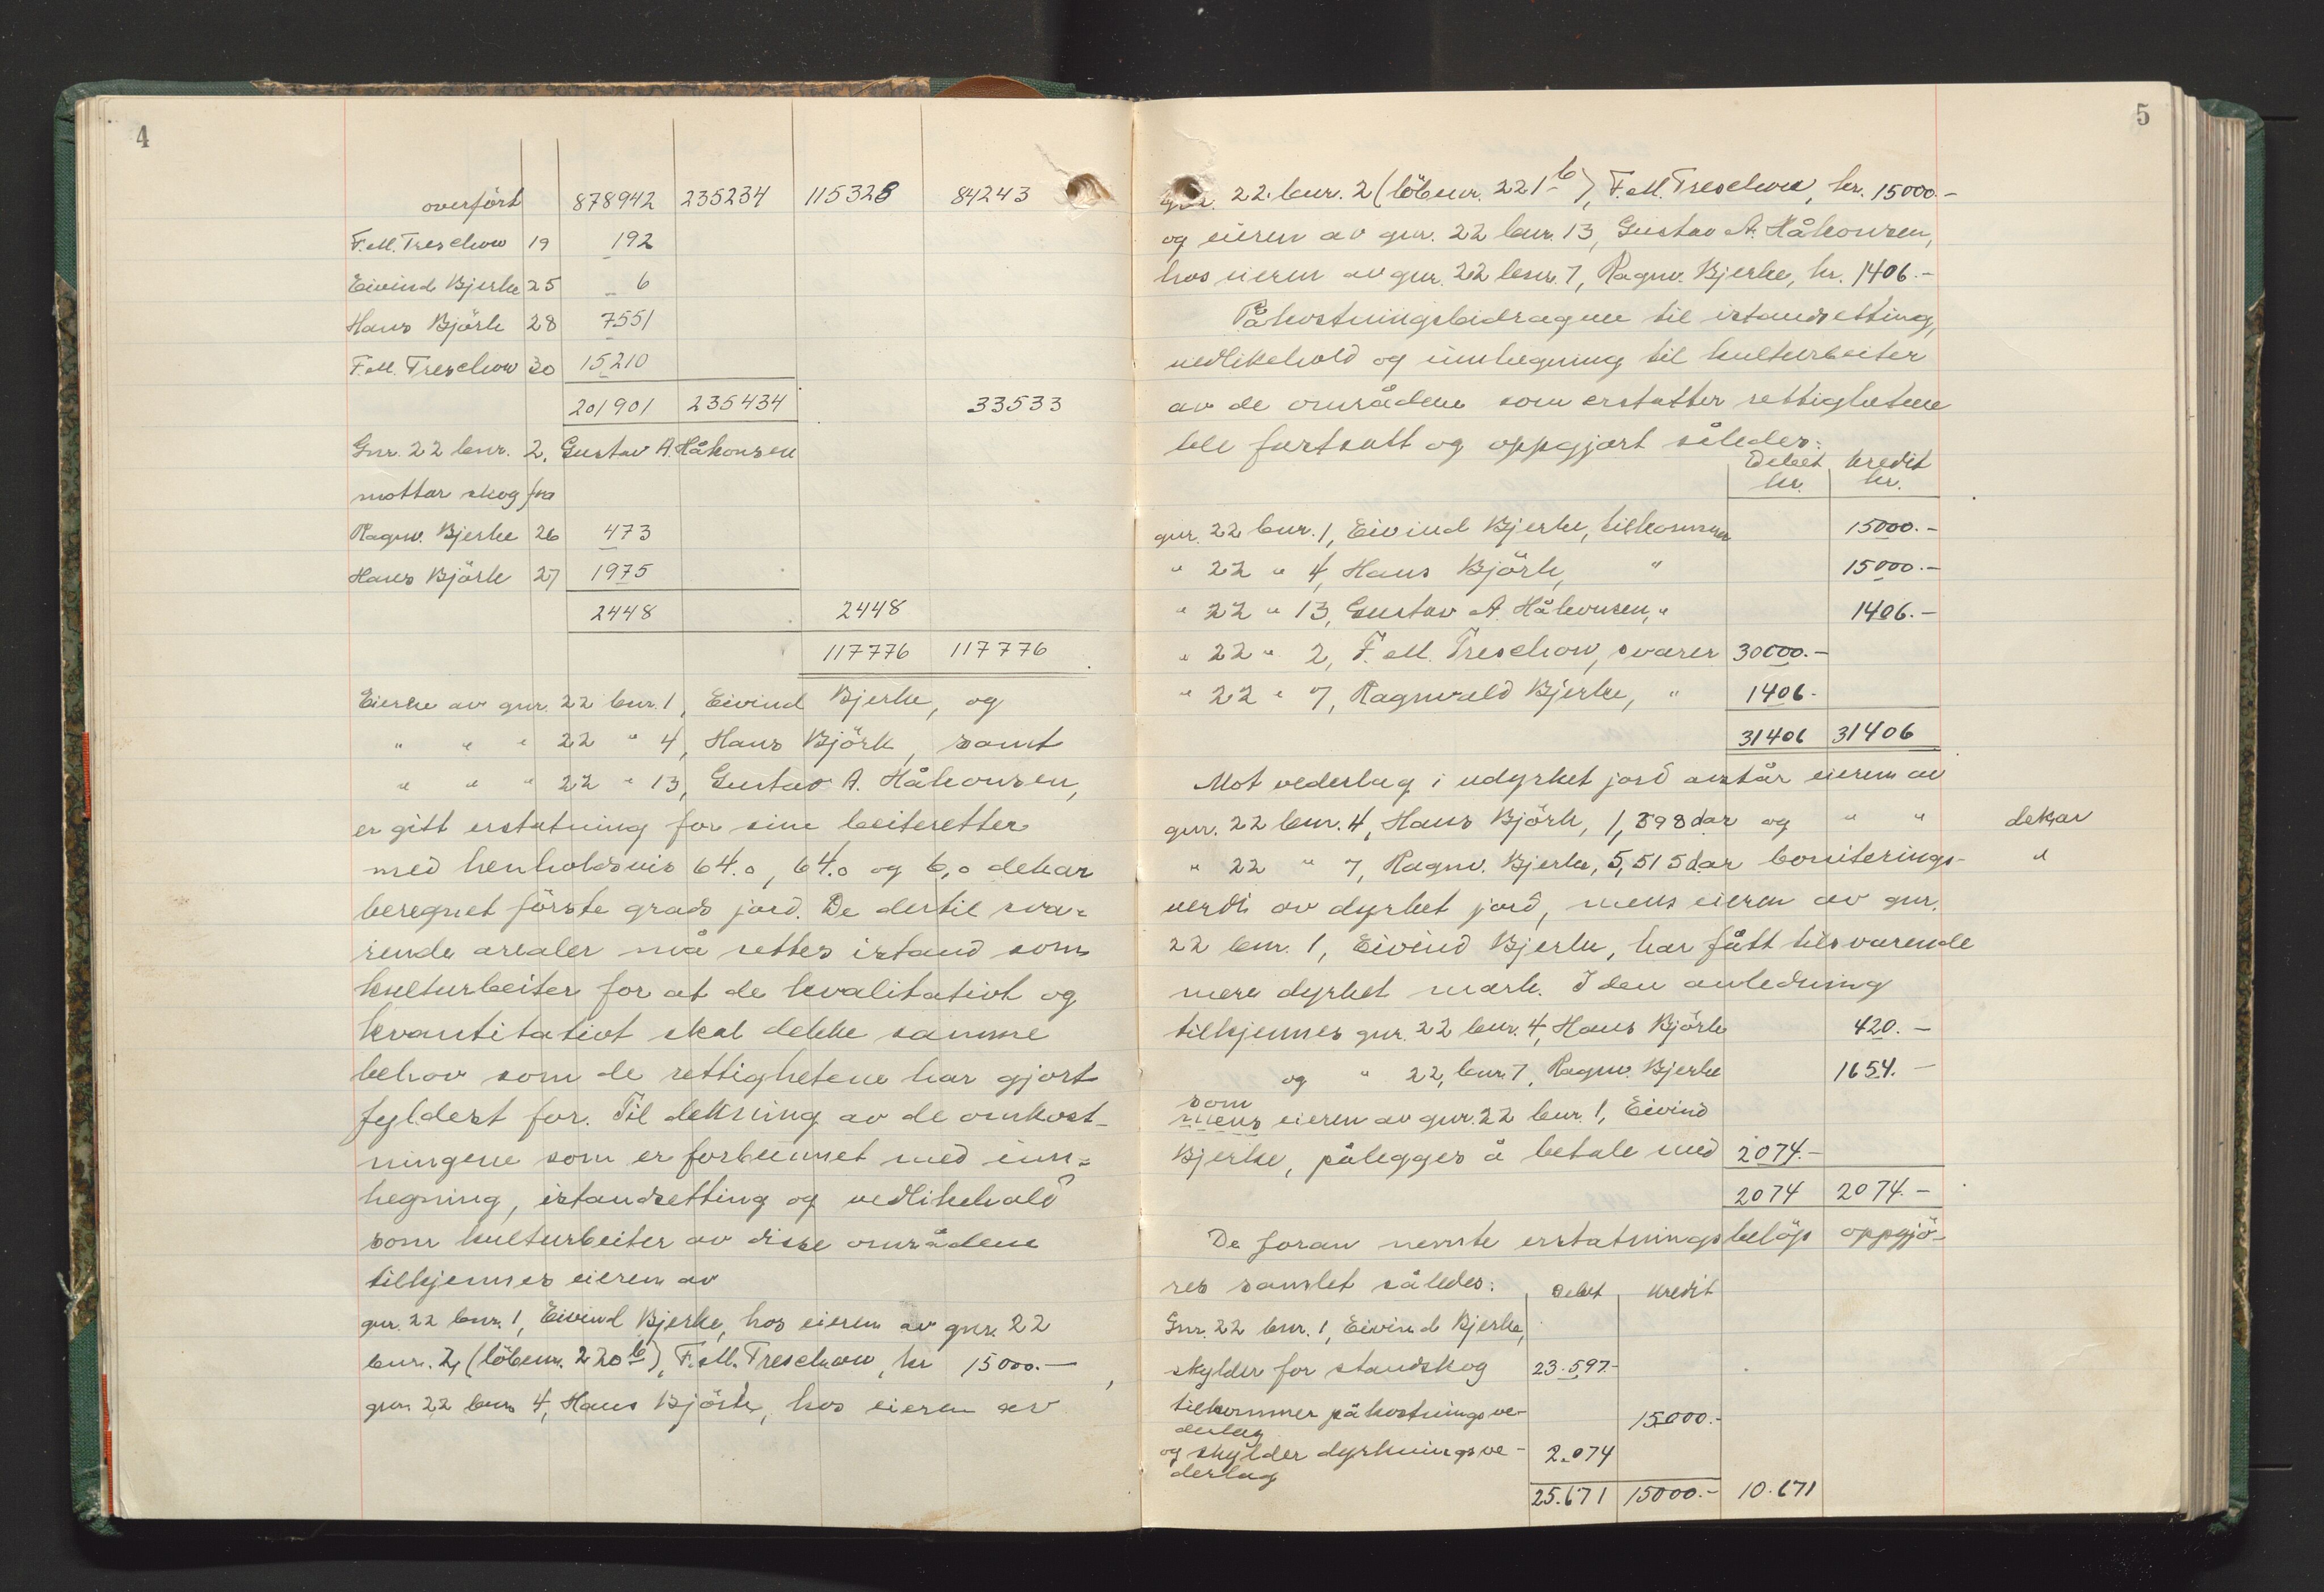 4
overført 878942 235234 115328 84243
F.M. Treschow 19 192
Eivind Bjerke 25 6
Hans Björk 28 7551
F.M. Treschow 30 15210
201901 235434 33533
Gnr. 22 bnr. 2. Gustav A. Håkonsen
mottar skog fra
Ragnv. Bjerke 26 473
Hans Björk 27 1975
2448 2448
117776 117776
Eieren av gnr. 22 bnr. 1, Eivind Bjerke, og
" " " 22 " 4, Hans Björk, samt
" " " 22 " 13, Gustav A. Håkonsen,
er gitt erstatning for sine beiteretter
med henholdsvis 64.0, 64.0 og 6,0 dekar
beregnet förste grads jord. De dertil sva-
rende arealer må settes istand som
kulturbeiter for at de kvalitativt og
kvantitativt skal dekke samme
behov som de rettighetene har gjort
fyldest for. Til dekning av de omkost-
ningene som er forbunnet med inn-
hegning, istandsetting og vedlikehold
som kulturbeiter av disse områdene
tilkjennes eieren av
gnr. 22 bnr. 1, Eivind Bjerke, hos eieren av gnr. 22
bnr. 2, (löbenr. 220 b), F.M. Treschow, kr 15000.—,
gnr. 22 bnr 4, Hans Björk, hos eieren av
5
gnr. 22. bnr. 2 (löbenr. 221 b), F.M. Treschow, kr. 15000.-
og eieren av gnr. 22 bnr. 13, Gustav A. Håkonsen,
hos eieren av gnr. 22 bnr. 7, Ragnv. Bjerke, kr. 1406.-
Påkostningsbidragene til istandsetting,
vedlikehold og innhegning til kulturbeiter
av de områdene som erstatter rettighetene
ble fastsatt og oppgjort således:
Debet kredit
kr. kr.
gnr. 22 bnr. 1, Eivind Bjerke, tilkommer 15000.-
" 22 " 4, Hans Björk, " 15000.-
" 22 " 13, Gustav A. Håkonsen, " 1406.-
" 22 " 2, F.M. Treschow, svarer 30000.-
" 22 " 7, Ragnvald Bjerke, " 1406.-
31406 31406
Mot vederlag i udyrket jord avstår eieren av
gnr. 22 bnr. 4, Hans Björk, 1,398 dar og " " dekar
" 22 " 7, Ragnv. Bjerke, 5,515 dar boniterings- "
verdi av dyrket jord, mens eieren av gnr.
22 bnr. 1, Eivind Bjerke, har fått tilsvarende
mere dyrket mark. I den anledning
tilkjennes gnr. 22 bnr. 4, Hans Björk 420.-
og " 22, bnr. 7, Ragnv. Bjerke 1654.-
som
mens eieren av gnr. 22 bnr. 1, Eivind
Bjerke, pålegges å betale med 2074.-
2074 2074.-
De foran nevnte erstatningsbelöp oppgjö-
res samlet således: Debet kredit
Gnr. 22 bnr. 1, Eivind Bjerke,
skylder for standskog 23.597.-
tilkommer påkostningsve-
derlag 15000.-
og skylder dyrkningsve-
derlag 2.074
25.671 15000.- 10.671